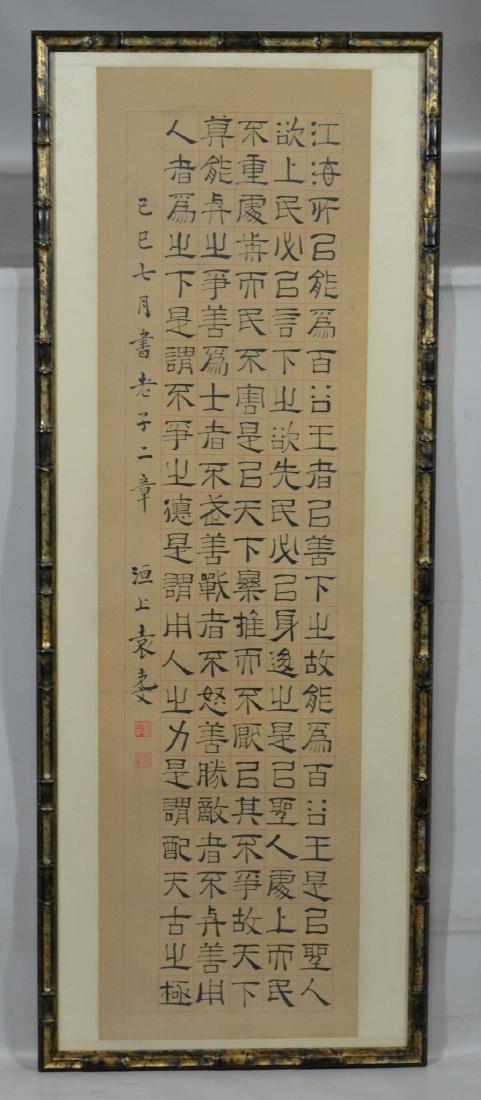 江海所以能為百谷王者以善下之故能為百谷王是以聖人
欲上民必以言下之欲先民必以身後之是以聖人處上而民
不重處前而民不害是以天下樂推而不厭以其不爭故天下
莫能與之爭善為士者不武善戰者不怒善勝敵者不與善用
人者為之下是謂不爭之德是謂用人之力是謂配天古之極
己巳七月書老子二章 洹上袁克文